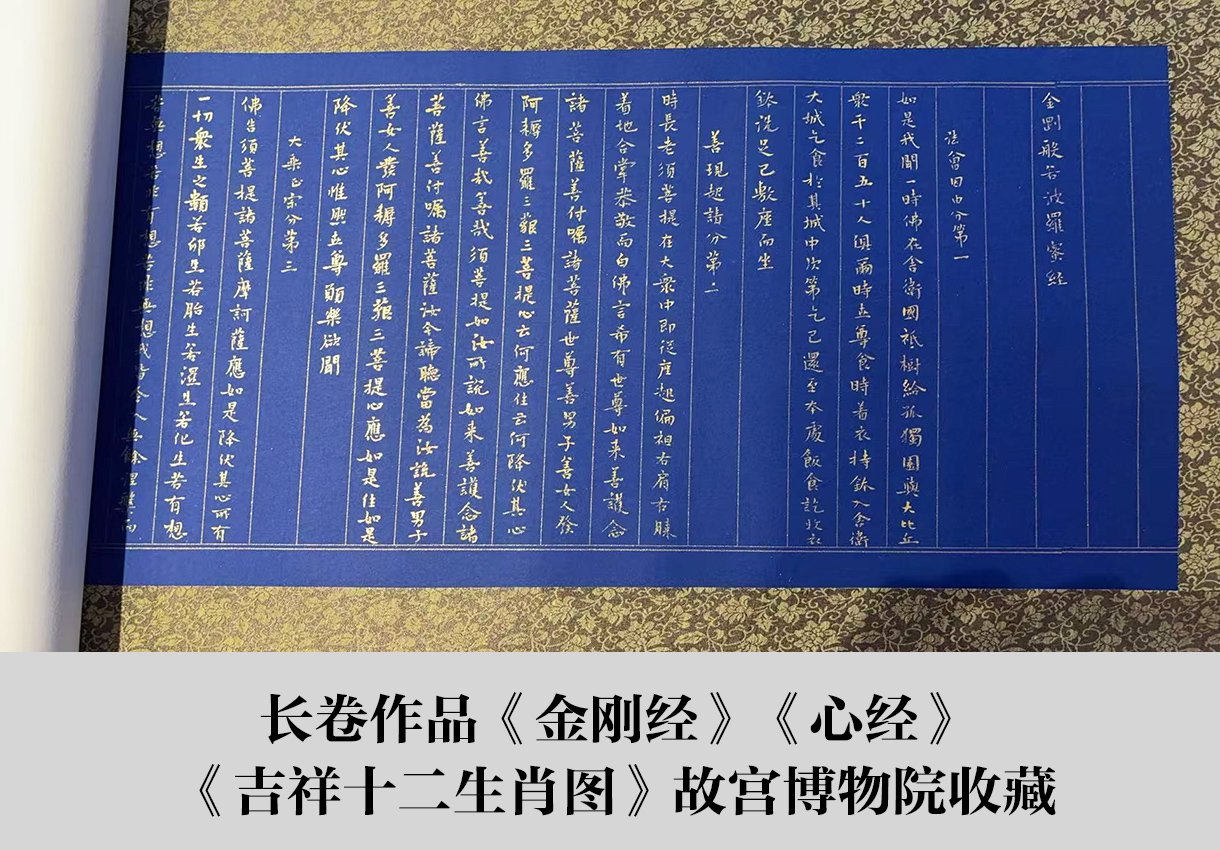 金剛般若波羅蜜經
法會因由分第一
如是我聞一時佛在舍衛國祇樹給孤獨園與大比丘
衆千二百五十人俱爾時世尊食時着衣持鉢入舍衛
大城乞食於其城中次第乞已還至本處飯食訖收衣
鉢洗足已敷座而坐
善現起請分第二
時長老須菩提在大衆中即從座起偏袒右肩右膝
着地合掌恭敬而白佛言希有世尊如来善護念
諸菩薩善付囑諸菩薩世尊善男子善女人發
阿耨多羅三藐三菩提心云何應住云何降伏其心
佛言善哉善哉須菩提如汝所說如来善護念諸
菩薩善付囑諸菩薩汝今諦聽當為汝說善男子
善女人發阿耨多羅三藐三菩提心應如是住如是
降伏其心惟然世尊願樂欲聞
大乘正宗分第三
佛告須菩提諸菩薩摩訶薩應如是降伏其心所有
一切衆生之類若卵生若胎生若濕生若化生若有想
若無想若非有想若非無想我皆令入無餘涅槃而
长卷作品《金刚经》《心经》
《吉祥十二生肖图》故宫博物院收藏